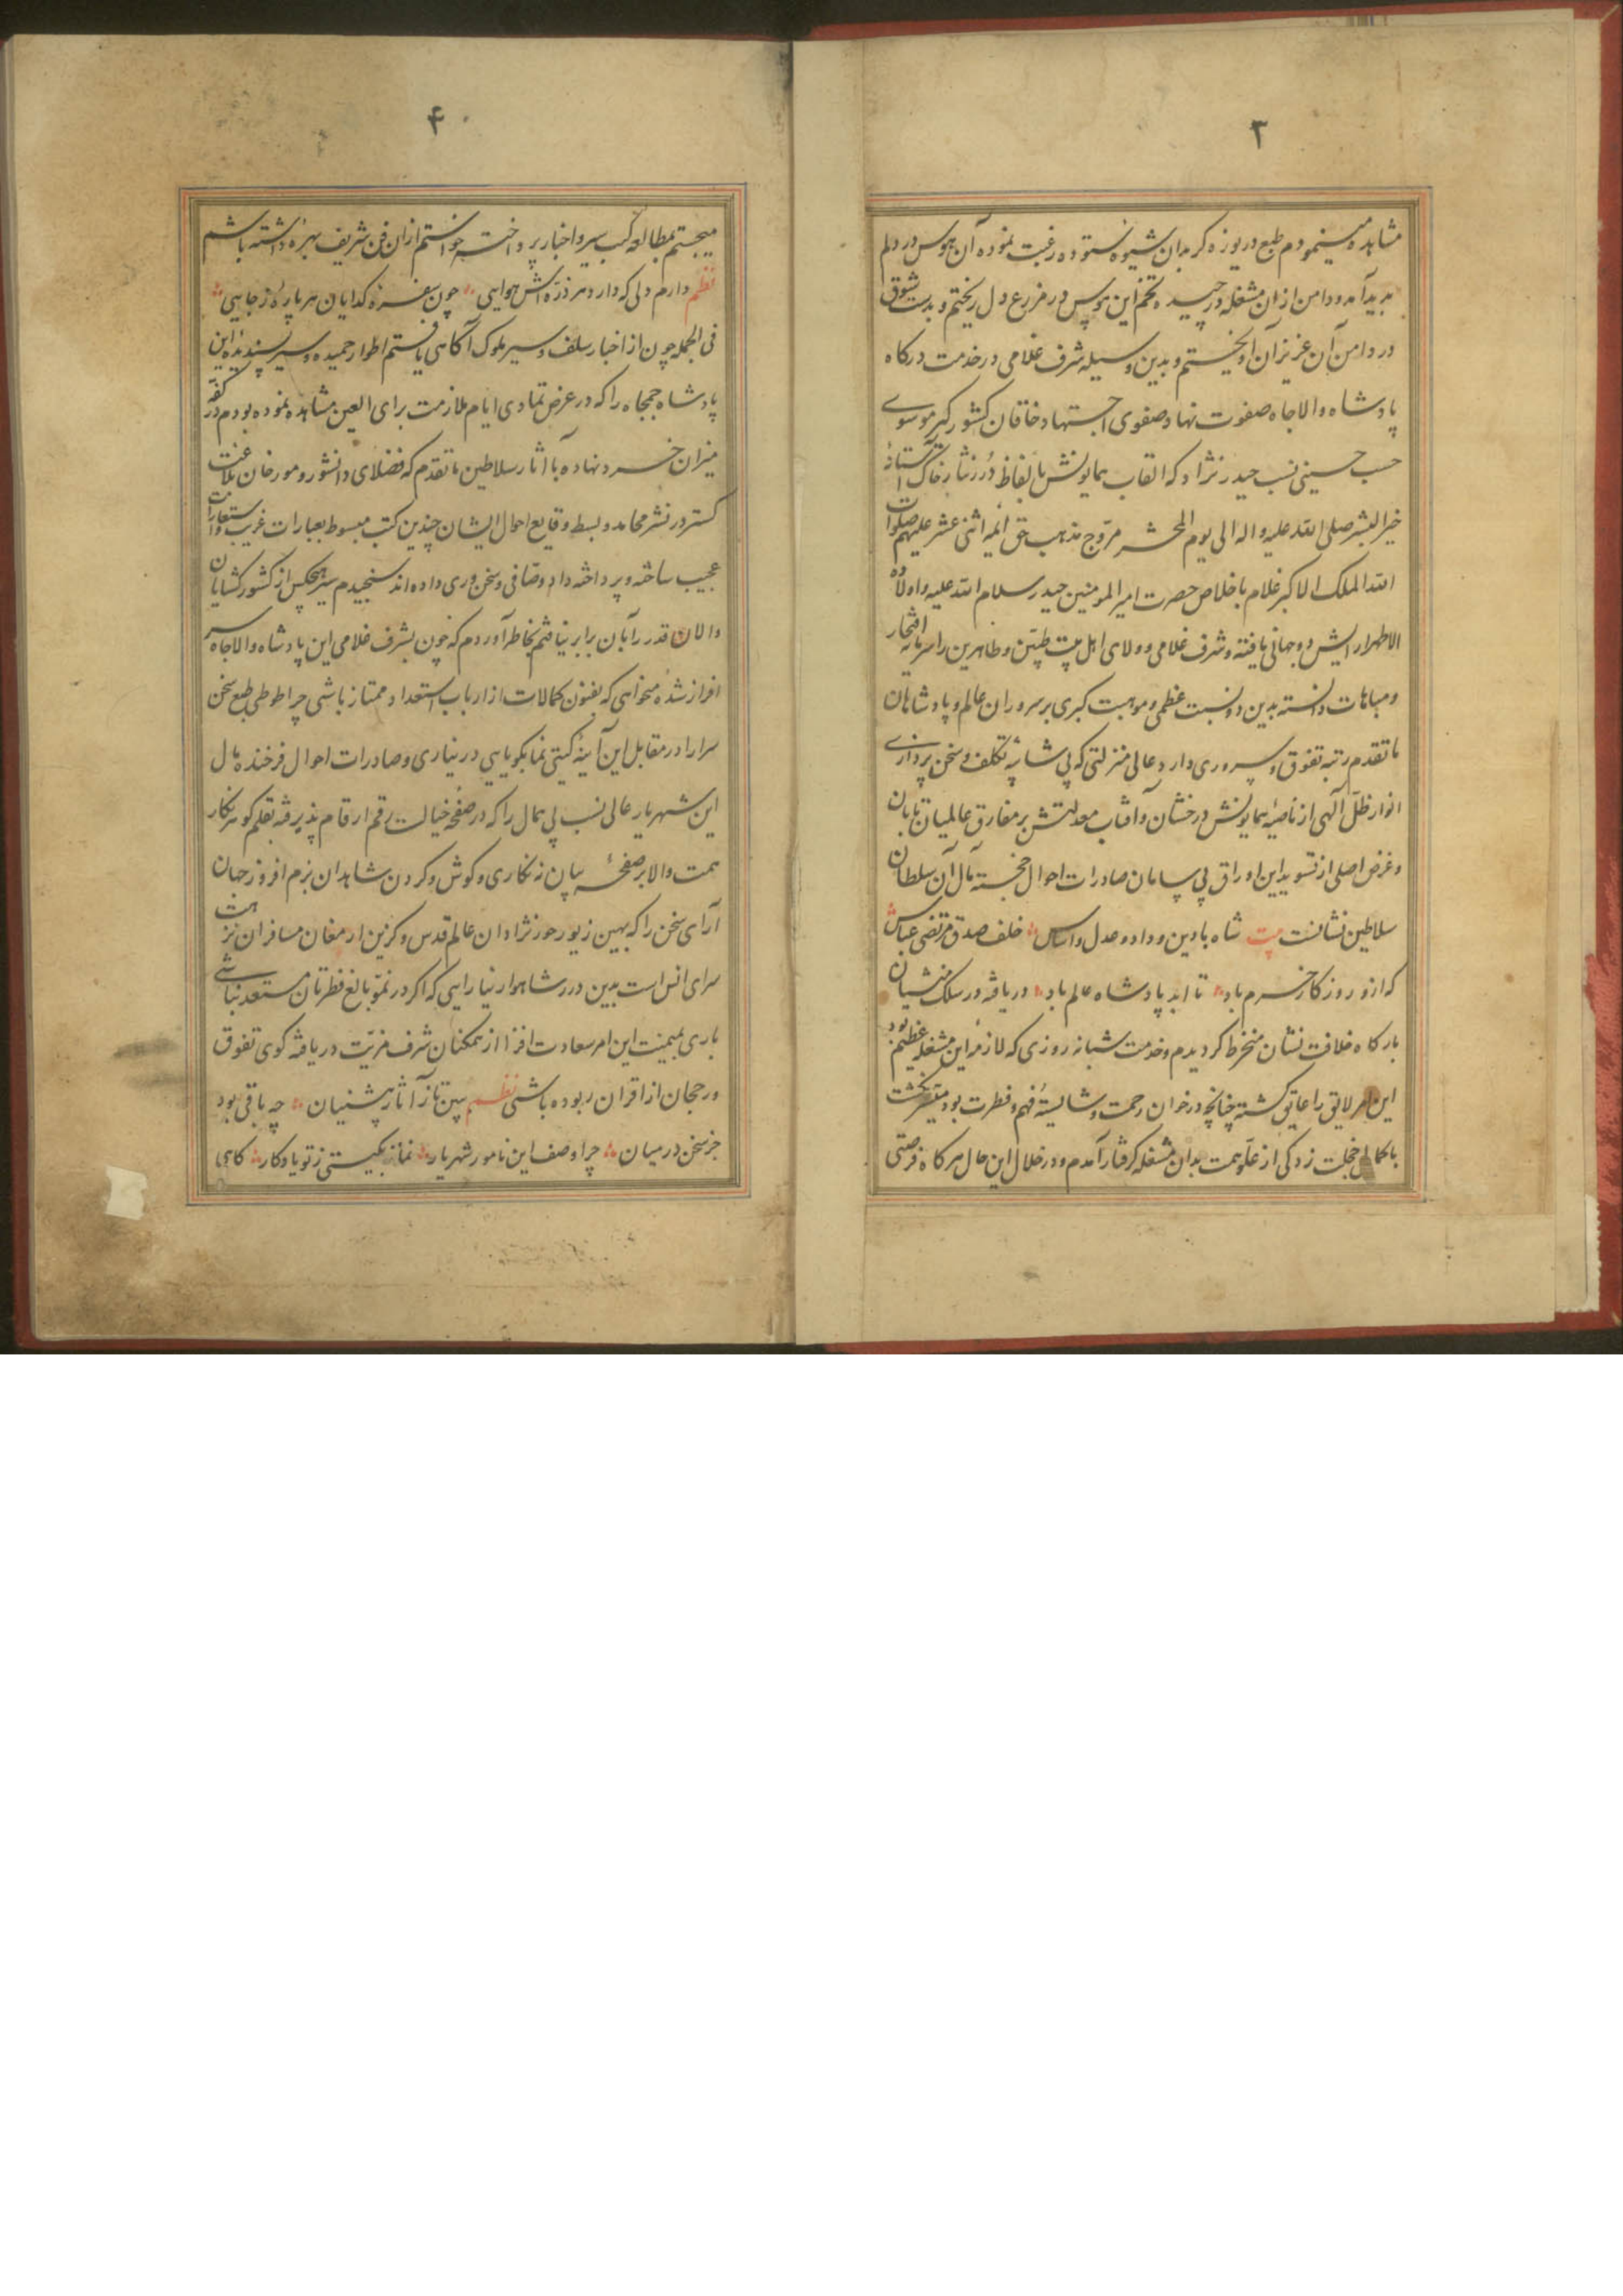 ۳
مشاهده مینمودم طبع دریوزه کر بدان شیوه ستوده رغبت نموده آن هوس در دلم
پدید آمد و دامن ازان مشغله درچیده تخم این هوس در مزرع دل ریختم و بدست شوق
در دامن آن عزیزان آویختم و بدین وسیله شرف غلامی در خدمت درکاه
پادشاه والاجاه صفوت نهاد صفوی اجتهاد خاقان کشورکیر موسوی
حسب حسینی نسب حیدر نژاد که القاب همایونش بالفاظ دُرر نثار خاک آستانهٔ
خیر البشر صلی الله علیه و اله الی یوم المحشر مروّج مذهب حق ائمه اثنی عشر علیهم صلوات
الله الملک الاکبر غلام باخلاص حضرت امیر المومنین حیدر سلام الله علیه و اولاده
الاطهار ارایش دو جهانی یافته و شرف غلامی و ولای اهل بیت طیّبین و طاهرین را سرمایه افتخار
و مباهات دانسته بدین دو نسبت عظمی و موهبت کبری بر سروران عالم و پادشاهان
ما تقدم رتبه تفوق و سروری دارد عالی منزلتی که بی شائبهٔ تکلف و سخن پردازی
انوار ظلّ آلهی از ناصیهٔ همایونش درخشان و آفتاب معدلتش بر مفارق عالمیان تابان
و غرض اصلی از تسوید این اوراق بی سامان صادرات احوال خجسته مآل آن سلطان
سلاطین نشانست بیت شاه با دین و داد و عدل و اساس خلف صدق مرتضی عباس
که ازو روزکار خرم باد تا ابد پادشاه عالم باد دریافته در سلک منشیان
بارکاه خلافت نشان منخرط کردیدم و خدمت شبانه روزی که لازمه این مشغله عظیم بود
این امر لایق را عایق کشته چنانچه درخوان رحمت و شایستهٔ فهم و فطرت بود میسر نکشت
با کمال خجلت زدکی از علو همت بدان مشغله کرفتار آمدم و در خلال این حال هر کاه فرصتی
۴
میجستم بمطالعه کتب سیر و اخبار پرداخته خواستم ازان فن شریف بهرهٔ داشته باشم
نظم دارم دلی که دارد هر ذرّه اش هوایی چون سفرهٔ کدایان هر پارهٔ ز جایی
فی الجمله چون از اخبار سلف و سیر ملوک آکاهی یافتم اطوار حمیده و سیر پسندیدهٔ این
پادشاه جمجاه را که در عرض تمادی ایام ملازمت برای العین مشاهده نموده بودم در کفّهٔ
میزان خرد نهاده با آثار سلاطین ما تقدم که فضلای دانشور و مورخان بلاغت
کستر در نشر محامد و بسط وقایع احوال ایشان چندین کتب مبسوط بعبارات غریب و استعارات
عجیب ساخته و پرداخته داد وصّافی و سخن وری داده اند سنجیدم سیر هیچکس از کشورکشایان
والاشان قدر را بآن برابر نیافتم بخاطر آوردم که چون بشرف غلامی این پادشاه والاجاه سر
افراز شدهٔ میخواهی که بفنون کمالات از ارباب استعداد ممتاز باشی چرا طوطی طبع سخن
سرا را در مقابل این آینهٔ کیتی نما بکویایی در نیاری و صادرات احوال فرخنده مآل
این شهریار عالی نسب بی همال را که در صفحه خیالت رقم ارقام پذیرفته بقلم کوهر نکار
همت والا بر صفحهٔ بیان نه نکاری و کوش و کردن شاهدان بزم افروز جهان
آرای سخن را که بهین زیور حور نژادان عالم قدس و کزین ارمغان مسافران نزهت
سرای انس است بدین درر شاهوار نیارایی که اکر در نمّو بالغ فطرتان مستعد نباشی
باری بمیمنت این امر سعادت افزا از همکنان شرف مزیّت دریافته کوی تفوق
و رجحان از اقران ربوده باشی نظم ببین تا ز آثار پیشنیان چه باقی بود
جز سخن در میان چرا وصف این نامور شهریار نماند بکیتی ز تو یادکار کاهی